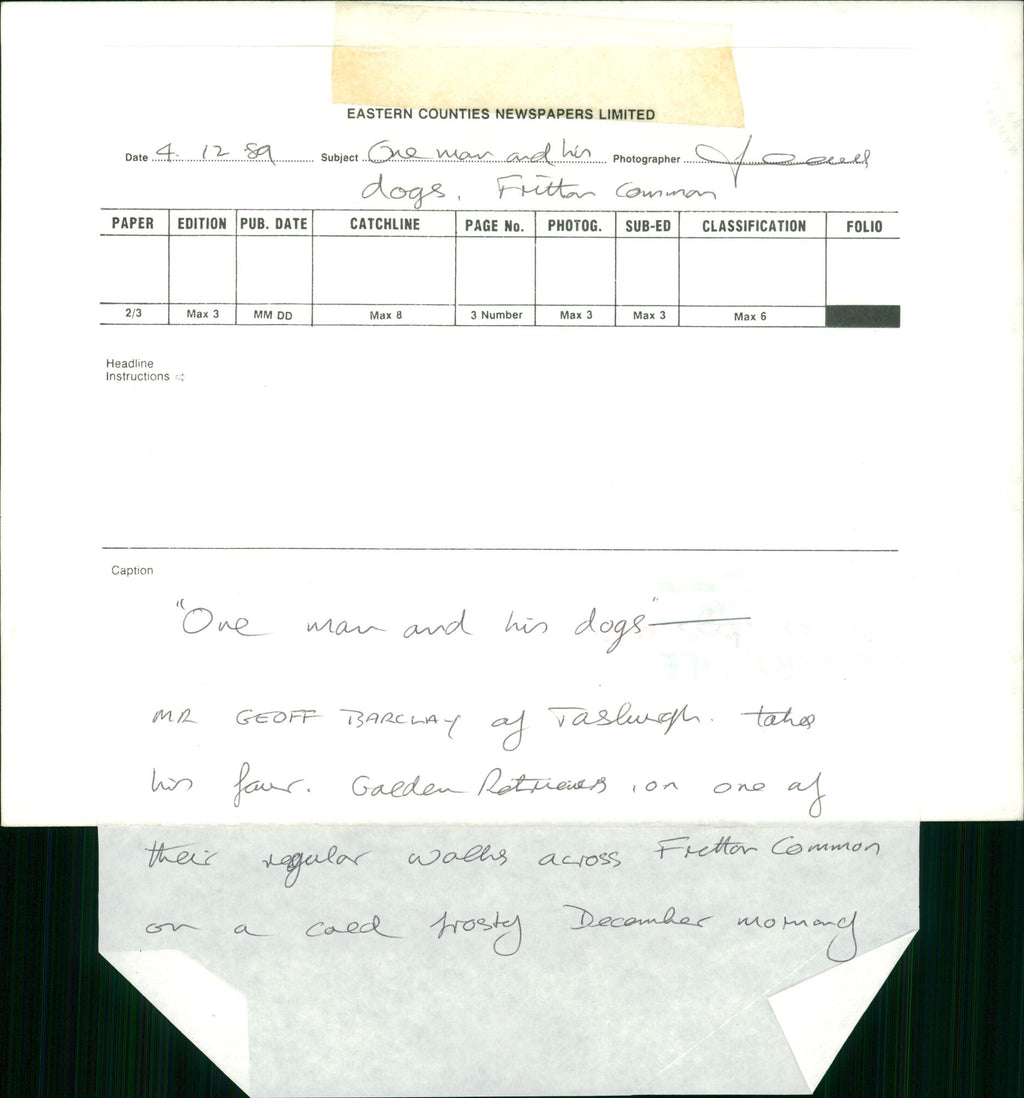 EASTERN COUNTIES NEWSPAPERS LIMITED
Date 4. 12 89 Subject One man and his Photographer
dogs. Fritton Common
PAPER EDITION PUB. DATE CATCHLINE PAGE No. PHOTOG. SUB-ED CLASSIFICATION FOLIO
2/3 Max 3 MM DD Max 8 3 Number Max 3 Max 3 Max 6
Headline
Instructions ⇨
Caption
"One man and his dogs"
MR GEOFF BARCLAY of Tasburgh. takes
his four. Golden Retrievers, on one of
their regular walks across Fritton Common
on a cold frosty December morning